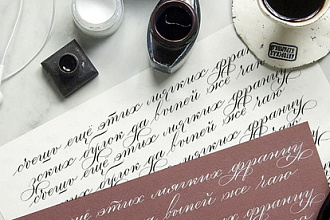 съешь ещё этих мягких францу
зских булок да выпей же чаю
съешь ещё этих мягких францу
зских булок да выпей же чаю
этих мягких францу
выпей же чаю